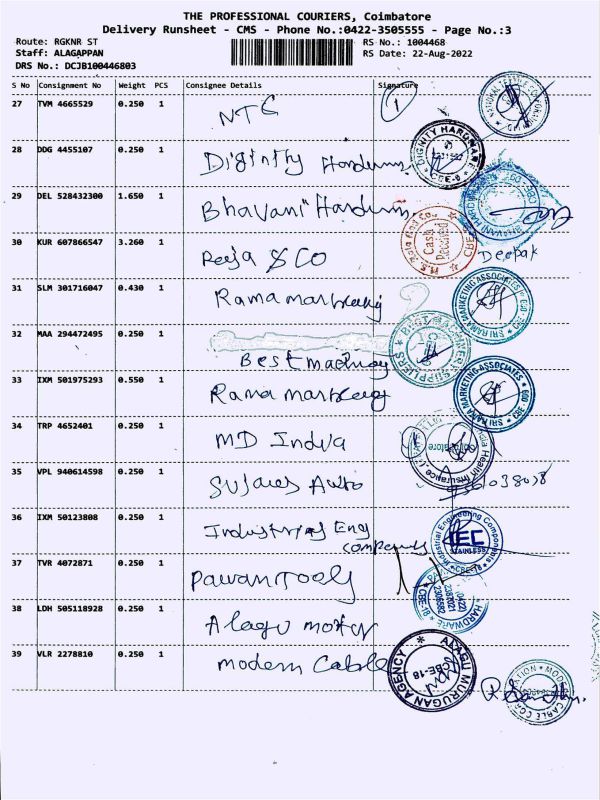 THE PROFESSIONAL COURIERS, Coimbatore
Delivery Runsheet - CMS - Phone No.:0422-3505555 - Page No.:3
Route: RGKNR ST
RS No.: 1004468
Staff: ALAGAPPAN
RS Date: 22-Aug-2022
DRS No.: DCJB100446803
S No Consignment No Weight PCS Consignee Details Signature
27 TVM 4665529 0.250 1 NTC 1
28 DDG 4455107 0.250 1 DIGNITY HARDWARE CBE-
29 DEL 528432300 1.650 1 Bhavani BHAVANI
30 KUR 607866547 3.260 1 & Co Cash Received Deepak
31 SLM 301716047 0.430 1 Rama SRI RAMA MARKETING ASSOCIATES
32 MAA 294472495 0.250 1 Best SUPPLIERS
33 IXM 501975293 0.550 1 Rama SRI RAMA MARKETING ASSOCIATES
34 TRP 4652401 0.250 1 MD India Health Insurance
35 VPL 940614598 0.250 1 Auto
36 IXM 50123808 0.250 1 Industrial Eng Industrial Engineering Components IEC STAINLESS CBE-18
37 TVR 4072871 0.250 1 Pawan Tools HARDWARE
38 LDH 505118928 0.250 1 Alagu motor
39 VLR 2278810 0.250 1 modern Cable ALAGU MURUGAN AGENCY CBE-18